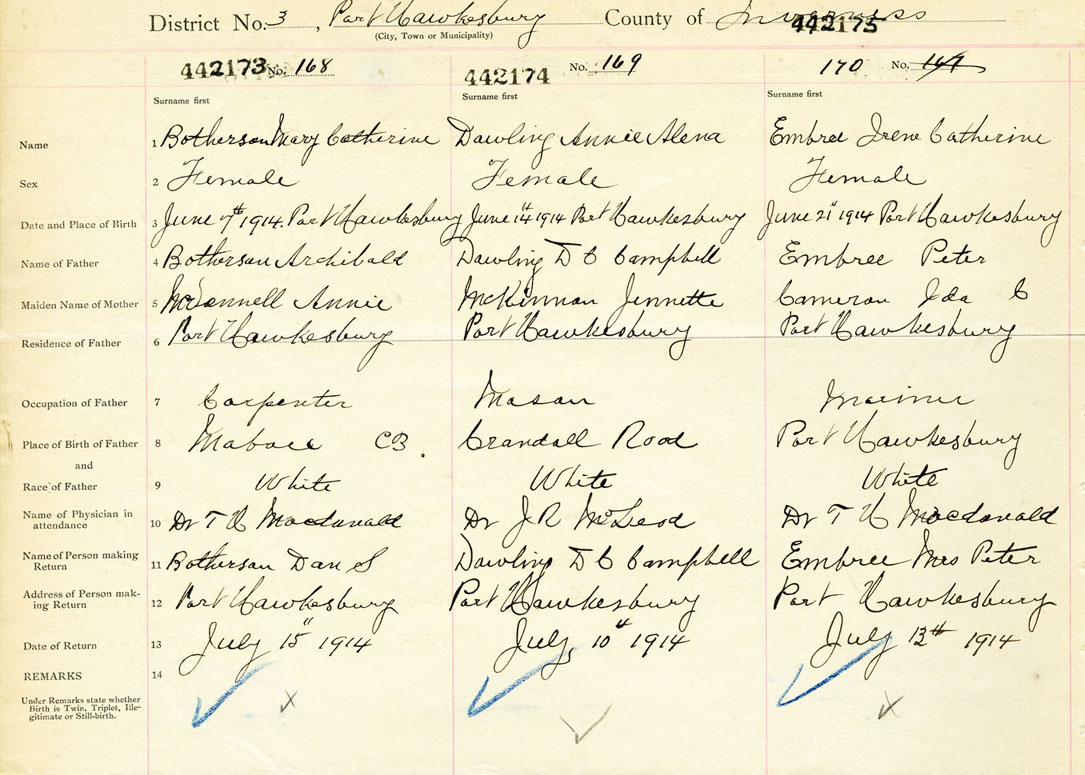 District No. 3, Port Hawkesbury County of Inverness
(City, Town or Municipality)
442175
442173 No. 168 442174 No. 169 170 No. 169
Surname first Surname first Surname first
Name 1 Botherson Mary Catherine Dawling Annie Alena Embree Irene Catherine
Sex 2 Female Female Female
Date and Place of Birth 3 June 7th 1914. Port Hawkesbury June 14 1914 Port Hawkesbury June 21 1914 Port Hawkesbury
Name of Father 4 Botherson Archibald Dawling D C Campbell Embree Peter
Maiden Name of Mother 5 Annie McKinnon Jennette Cameron Ida C
Residence of Father 6 Port Hawkesbury Port Hawkesbury Port Hawkesbury
Occupation of Father 7 Carpenter Mason
Place of Birth of Father 8 Mabou CB. Crandall Road Port Hawkesbury
and
Race of Father 9 White White White
Name of Physician in
attendance 10 Dr T H Macdonald Dr J R McLeod Dr T H Macdonald
Name of Person making
Return 11 Botherson Dan S Dawling D C Campbell Embree Mrs Peter
Address of Person mak-
ing Return 12 Port Hawkesbury Port Hawkesbury Port Hawkesbury
Date of Return 13 July 15" 1914 July 10" 1914 July 13th 1914
REMARKS 14
Under Remarks state whether
Birth is Twin, Triplet, Ille-
gitimate or Still-birth.